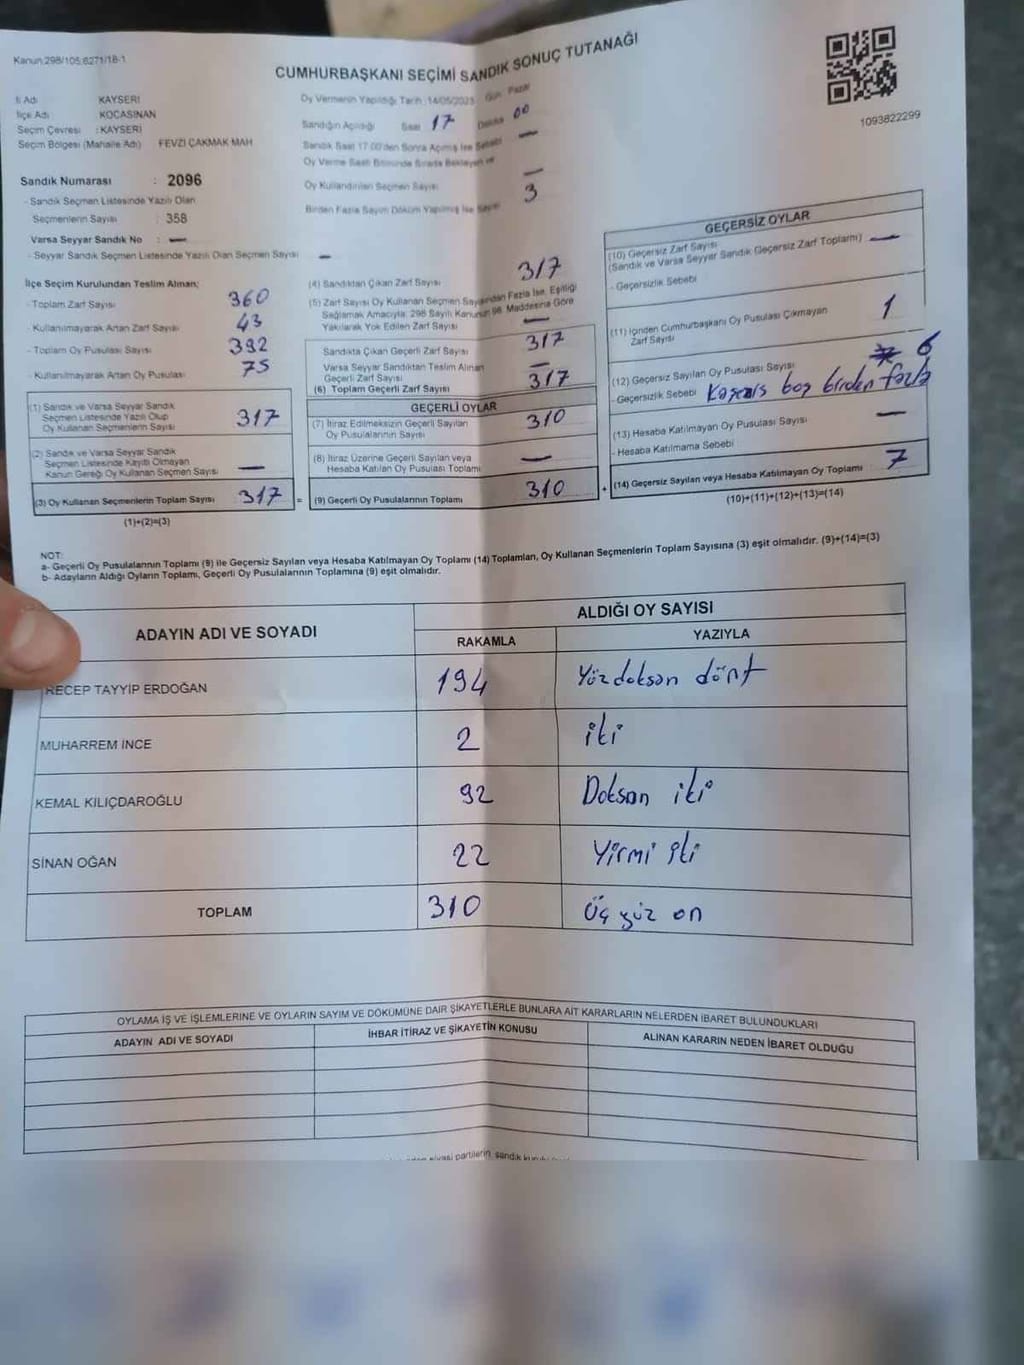 Kanun:298/105;6271/18-1
CUMHURBAŞKANI SEÇİMİ SANDIK SONUÇ TUTANAĞI
1093822299
İl Adı KAYSERİ
İlçe Adı KOCASİNAN
Seçim Çevresi : KAYSERİ
Seçim Bölgesi (Mahalle Adı) FEVZİ ÇAKMAK MAH
Sandık Numarası : 2096
- Sandık Seçmen Listesinde Yazılı Olan
Seçmenlerin Sayısı : 358
Varsa Seyyar Sandık No : —
- Seyyar Sandık Seçmen Listesinde Yazılı Olan Seçmen Sayısı —
Oy Vermenin Yapıldığı Tarih :14/05/2023 Gün: Pazar
Sandığın Açıldığı Saat 17 Dakika 00
Sandık Saat 17.00'den Sonra Açılmış İse Sebebi —
Oy Verme Saati Bitiminde Sırada Bekleyen ve
Oy Kullandırılan Seçmen Sayısı —
Birden Fazla Sayım Döküm Yapılmış İse Sayısı 3
İlçe Seçim Kurulundan Teslim Alınan;
- Toplam Zarf Sayısı 360
- Kullanılmayarak Artan Zarf Sayısı 43
- Toplam Oy Pusulası Sayısı 392
- Kullanılmayarak Artan Oy Pusulası 75
(1) Sandık ve Varsa Seyyar Sandık
Seçmen Listesinde Yazılı Olup
Oy Kullanan Seçmenlerin Sayısı 317
(2) Sandık ve Varsa Seyyar Sandık
Seçmen Listesinde Kayıtlı Olmayan
Kanun Gereği Oy Kullanan Seçmen Sayısı —
(3) Oy Kullanan Seçmenlerin Toplam Sayısı 317 =
(1)+(2)=(3)
(4) Sandıktan Çıkan Zarf Sayısı 317
(5) Zarf Sayısı Oy Kullanan Seçmen Sayısından Fazla İse, Eşitliği
Sağlamak Amacıyla; 298 Sayılı Kanunun 98. Maddesine Göre
Yakılarak Yok Edilen Zarf Sayısı —
Sandıkta Çıkan Geçerli Zarf Sayısı 317
Varsa Seyyar Sandıktan Teslim Alınan
Geçerli Zarf Sayısı —
(6) Toplam Geçerli Zarf Sayısı 317
GEÇERLİ OYLAR
(7) İtiraz Edilmeksizin Geçerli Sayılan
Oy Pusulalarının Sayısı 310
(8) İtiraz Üzerine Geçerli Sayılan veya
Hesaba Katılan Oy Pusulası Toplamı —
(9) Geçerli Oy Pusulalarının Toplamı 310 +
GEÇERSİZ OYLAR
(10) Geçersiz Zarf Sayısı
(Sandık ve Varsa Seyyar Sandık Geçersiz Zarf Toplamı) —
- Geçersizlik Sebebi
(11) İçinden Cumhurbaşkanı Oy Pusulası Çıkmayan
Zarf Sayısı 1
(12) Geçersiz Sayılan Oy Pusulası Sayısı 6
- Geçersizlik Sebebi boş birden fazla
(13) Hesaba Katılmayan Oy Pusulası Sayısı —
- Hesaba Katılmama Sebebi
(14) Geçersiz Sayılan veya Hesaba Katılmayan Oy Toplamı 7
(10)+(11)+(12)+(13)=(14)
NOT:
a- Geçerli Oy Pusulalarının Toplamı (9) ile Geçersiz Sayılan veya Hesaba Katılmayan Oy Toplamı (14) Toplamları, Oy Kullanan Seçmenlerin Toplam Sayısına (3) eşit olmalıdır. (9)+(14)=(3)
b- Adayların Aldığı Oyların Toplamı, Geçerli Oy Pusulalarının Toplamına (9) eşit olmalıdır.
ADAYIN ADI VE SOYADI ALDIĞI OY SAYISI
RAKAMLA YAZIYLA
RECEP TAYYİP ERDOĞAN 194 Yüzdoksan dört
MUHARREM İNCE 2 iki
KEMAL KILIÇDAROĞLU 92 Doksan iki
SİNAN OĞAN 22 Yirmi iki
TOPLAM 310 Üç yüz on
OYLAMA İŞ VE İŞLEMLERİNE VE OYLARIN SAYIM VE DÖKÜMÜNE DAİR ŞİKAYETLERLE BUNLARA AİT KARARLARIN NELERDEN İBARET BULUNDUKLARI
ADAYIN ADI VE SOYADI İHBAR İTİRAZ VE ŞİKAYETİN KONUSU ALINAN KARARIN NEDEN İBARET OLDUĞU
siyasi partilerin, sandık